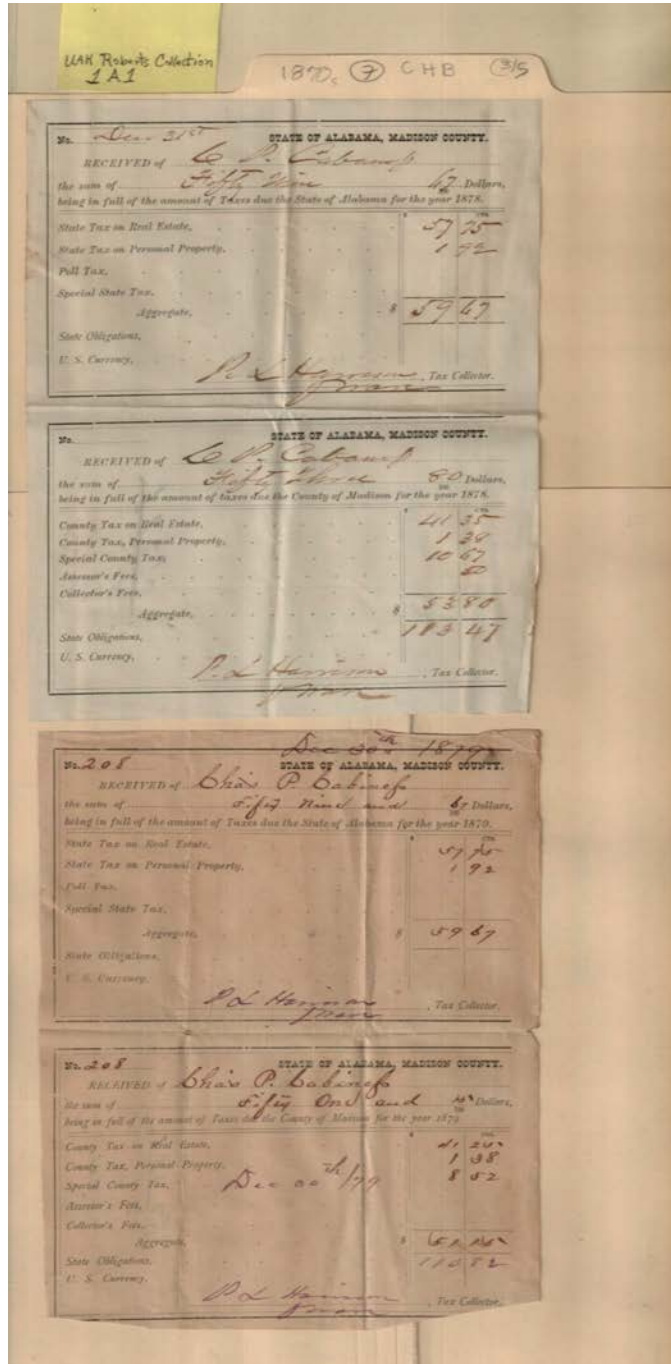 UAH Roberts Collection
1 A 1
1870s 7 CHB 3/5
No. Dec 31st STATE OF ALABAMA, MADISON COUNTY.
RECEIVED of C P. Cabaniss
the sum of Fifty Nine 67/100 Dollars,
being in full of the amount of Taxes due the State of Alabama for the year 1878.
$ CTS.
State Tax on Real Estate, 57 75
State Tax on Personal Property, 1 92
Poll Tax,
Special State Tax,
Aggregate, $ 59 67
State Obligations,
U. S. Currency,
P. L Harrison, Tax Collector.
No. STATE OF ALABAMA, MADISON COUNTY.
RECEIVED of C P. Cabaniss
the sum of Fifty Three 80/100 Dollars,
being in full of the amount of taxes due the County of Madison for the year 1878.
County Tax on Real Estate, 41 25
County Tax, Personal Property, 1 38
Special County Tax, 10 67
Assessor's Fees, 50
Collector's Fees,
Aggregate, $ 53 80
State Obligations, 113 47
U. S. Currency,
P. L Harrison, Tax Collector.
Dec 30th 1879
No. 208 STATE OF ALABAMA, MADISON COUNTY.
RECEIVED of Chas P. Cabiness
the sum of Fifty Nine and 67/100 Dollars,
being in full of the amount of Taxes due the State of Alabama for the year 1879.
State Tax on Real Estate, 57 75
State Tax on Personal Property, 1 92
Poll Tax,
Special State Tax,
Aggregate, $ 59 67
State Obligations,
U. S. Currency.
P. L Harrison, Tax Collector.
No. 208 STATE OF ALABAMA, MADISON COUNTY.
RECEIVED of Chas P. Cabiness
the sum of Fifty One and 15/100 Dollars,
being in full of the amount of Taxes due the County of Madison for the year 1879
County Tax on Real Estate, 41 25
County Tax, Personal Property, 1 38
Special County Tax, Dec 30th /79 8 52
Assessor's Fees,
Collector's Fees,
Aggregate, $ 51 15
State Obligations, 110 82
U. S. Currency.
P. L Harrison, Tax Collector.